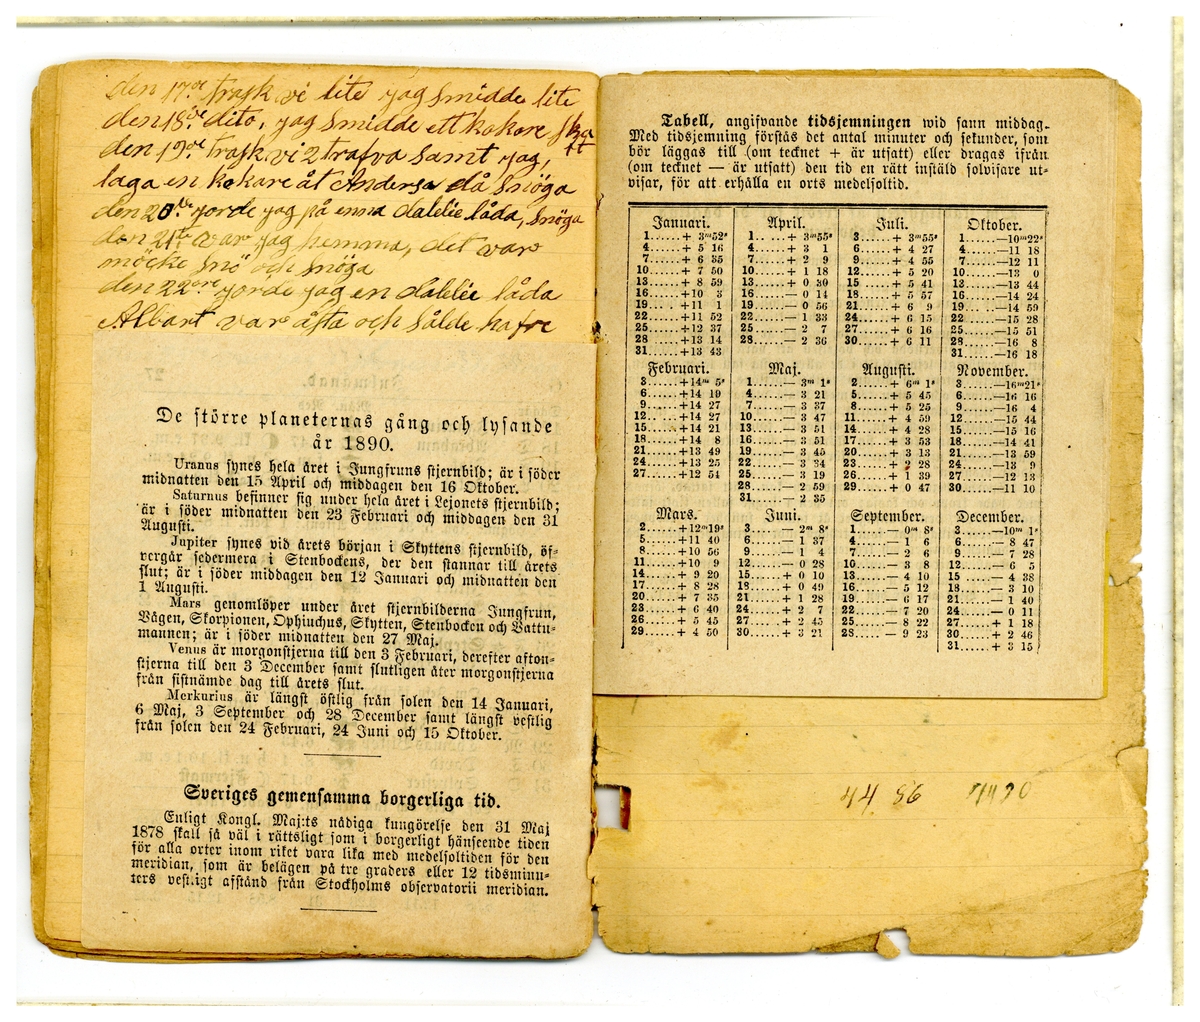 den 17de trask vi lite jag smidde lite
den 18de dito, jag smidde ett kokore ska
den 19de trask vi 2 trafva samt jag,
laga en kokare åt Andersa då snöga
den 20de jorde jag på enna dalelie låda, snöga
den 21te var jag hemma, det var
möcke snö och snöga
den 22dre jorde jag en dalelie låda
Albart var åsta och sålde hafre
De större planeternas gång och lysande
år 1890.
Uranus synes hela året i Jungfruns stjernbild; är i söder
midnatten den 15 April och middagen den 16 Oktober.
Saturnus befinner sig under hela året i Lejonets stjernbild;
är i söder midnatten den 23 Februari och middagen den 31
Augusti.
Jupiter synes vid årets början i Skyttens stjernbild, öf-
vergår sedermera i Stenbockens, der den stannar till årets
slut; är i söder middagen den 12 Januari och midnatten den
1 Augusti.
Mars genomlöper under året stjernbilderna Jungfrun,
Vågen, Skorpionen, Ophiuchus, Skytten, Stenbocken och Vattu-
mannen; är i söder midnatten den 27 Maj.
Venus är morgonstjerna till den 3 Februari, derefter afton-
stjerna till den 3 December samt slutligen åter morgonstjerna
från sistnämde dag till årets slut.
Merkurius är längst östlig från solen den 14 Januari,
6 Maj, 3 September och 28 December samt längst vestlig
från solen den 24 Februari, 24 Juni och 15 Oktober.
Sveriges gemensamma borgerliga tid.
Enligt Kongl. Maj:ts nådiga kungörelse den 31 Maj
1878 skall så väl i rättsligt som i borgerligt hänseende tiden
för alla orter inom riket vara lika med medelsoltiden för den
meridian, som är belägen på tre graders eller 12 tidsminu-
ters vestligt afstånd från Stockholms observatorii meridian.
Tabell, angifvande tidsjemningen vid sann middag.
Med tidsjemning förstås det antal minuter och sekunder, som
bör läggas till (om tecknet + är utsatt) eller dragas ifrån
(om tecknet — är utsatt) den tid en rätt instäld solvisare ut-
visar, för att erhålla en orts medelsoltid.
Januari.
1......+ 3m52s
4......+ 5 16
7......+ 6 35
10......+ 7 50
13......+ 8 59
16......+10 3
19......+11 1
22......+11 52
25......+12 37
28......+13 14
31......+13 43
Februari.
3......+14m 5s
6......+14 19
9......+14 27
12......+14 27
15......+14 21
18......+14 8
21......+13 49
24......+13 25
27......+12 54
Mars.
2......+12m19s
5......+11 40
8......+10 56
11......+10 9
14......+ 9 20
17......+ 8 28
20......+ 7 35
23......+ 6 40
26......+ 5 45
29......+ 4 50
April.
1......+ 3m55s
4......+ 3 1
7......+ 2 9
10......+ 1 18
13......+ 0 30
16......— 0 14
19......— 0 56
22......— 1 33
25......— 2 7
28......— 2 36
Maj.
1......— 3m 1s
4......— 3 21
7......— 3 37
10......— 3 47
13......— 3 51
16......— 3 51
19......— 3 45
22......— 3 34
25......— 3 19
28......— 2 59
31......— 2 35
Juni.
3......— 2m 8s
6......— 1 37
9......— 1 4
12......— 0 28
15......+ 0 10
18......+ 0 49
21......+ 1 28
24......+ 2 7
27......+ 2 45
30......+ 3 21
Juli.
3......+ 3m55s
6......+ 4 27
9......+ 4 55
12......+ 5 20
15......+ 5 41
18......+ 5 57
21......+ 6 9
24......+ 6 15
27......+ 6 16
30......+ 6 11
Augusti.
2......+ 6m 1s
5......+ 5 45
8......+ 5 25
11......+ 4 59
14......+ 4 28
17......+ 3 53
20......+ 3 13
23......+ 2 28
26......+ 1 39
29......+ 0 47
September.
1......— 0m 8s
4......— 1 6
7......— 2 6
10......— 3 8
13......— 4 10
16......— 5 12
19......— 6 17
22......— 7 20
25......— 8 22
28......— 9 23
Oktober.
1......—10m22s
4......—11 18
7......—12 11
10......—13 0
13......—13 44
16......—14 24
19......—14 59
22......—15 28
25......—15 51
28......—16 8
31......—16 18
November.
3......—16m21s
6......—16 16
9......—16 4
12......—15 44
15......—15 16
18......—14 41
21......—13 59
24......—13 9
27......—12 13
30......—11 10
December.
3......—10m 1s
6......— 8 47
9......— 7 28
12......— 6 5
15......— 4 38
18......— 3 10
21......— 1 40
24......— 0 11
27......+ 1 18
30......+ 2 46
31......+ 3 15
44 86